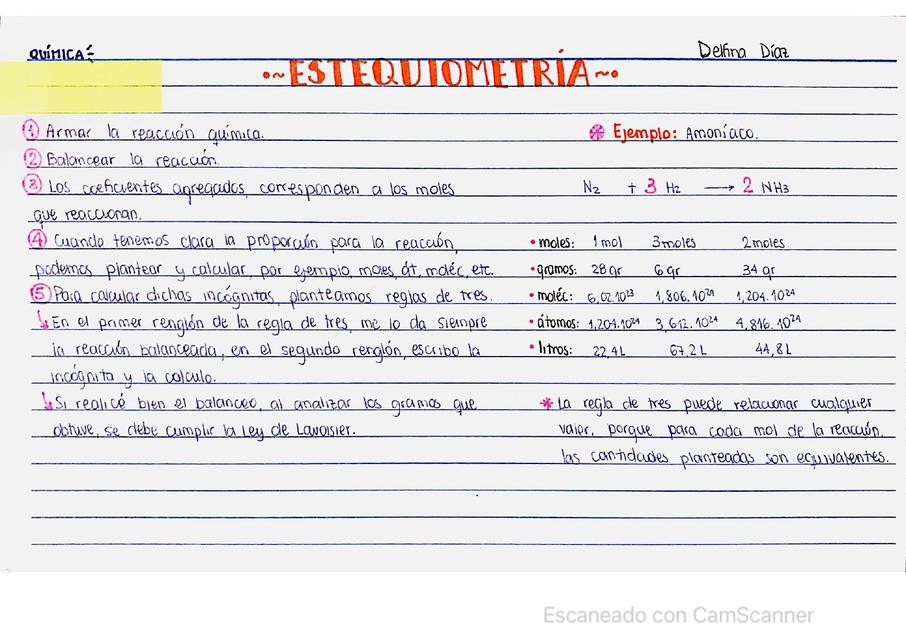 QUÍMICA:
Delfina Díaz
•~ESTEQUIOMETRÍA~•
① Armar la reacción química.
② Balancear la reacción.
③ Los coeficientes agregados corresponden a los moles
que reaccionan.
④ Cuando tenemos clara la proporción para la reacción,
podemos plantear y calcular, por ejemplo, moles, át, moléc, etc.
⑤ Para calcular dichas incógnitas, planteamos reglas de tres.
↳ En el primer renglón de la regla de tres, me lo da siempre
la reacción balanceada, en el segundo renglón, escribo la
incógnita y la calculo.
↳ Si realicé bien el balanceo, al analizar los gramos que
obtuve, se debe cumplir la Ley de Lavoisier.
* Ejemplo: Amoníaco.
N₂ + 3 H₂ ⟶ 2 NH₃
• moles: 1 mol 3 moles 2 moles.
• gramos: 28 gr 6 gr 34 gr
• moléc: 6,02.10²³ 1,806.10²⁴ 1,204.10²⁴
• átomos: 1,204.10²⁴ 3,612.10²⁴ 4,816.10²⁴
• litros: 22,4 L 67,2 L 44,8 L
* La regla de tres puede relacionar cualquier
valor, porque para cada mol de la reacción,
las cantidades planteadas son equivalentes.
Escaneado con CamScanner